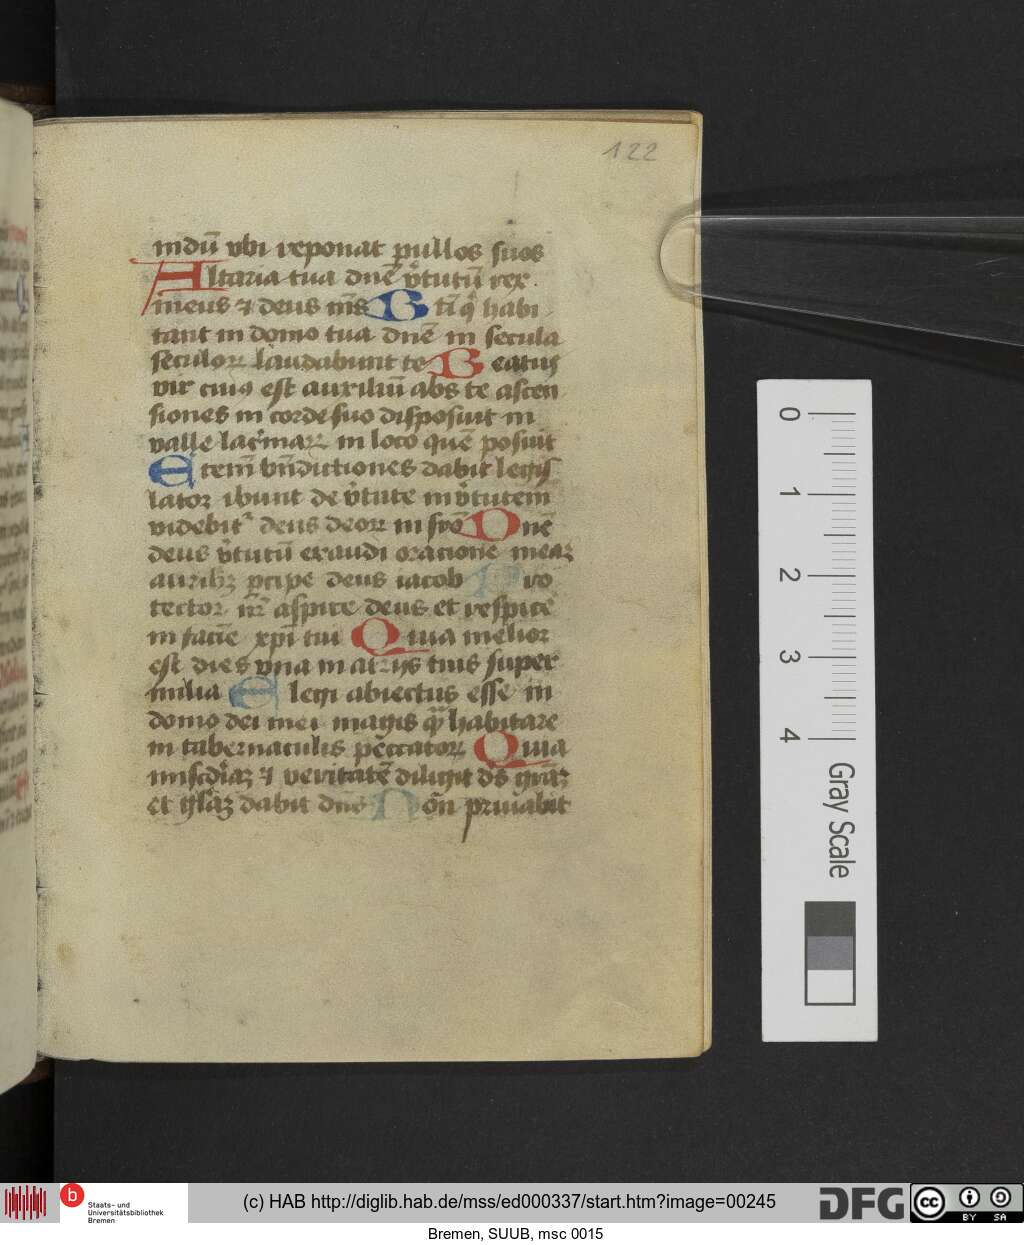 122
nidū vbi reponat pullos suos
Altaria tua dnē v̓tutū rex
meus ⁊ deus m̄s Bti̅ q̓ habi
tant in domo tua dnē in secula
seculoꝝ laudabunt te Beatus
vir cuiꝰ est auxiliū abs te ascen
siones in corde suo disposuit in
valle lac̓maꝝ in loco quē posuit
Etem̄ bn̄dictiones dabit legis
lator ibunt de v̓tute in v̓tutem
videbit᷑ deus deoꝝ in syō Dnē
deus v̓tutū exaudi oracionē meaꝫ
auribꝫ ꝑcipe deus iacob Pro
tector nr̄ aspice deus et respice
in faciē xpi̅ tui Quia melior
est dies vna in atrijs tuis super
milia Elegi abiectus esse in
domo dei mei magis q̄ habitare
in tabernaculis peccatoꝝ Quia
mis̄diaꝫ ⁊ veritatē diligit ds̄ gr̄aꝫ
et gl̄aꝫ dabit dns̄ Nōn priuabit
0
1
2
3
4
Gray Scale
b
Staats- und
Universitätsbibliothek
Bremen
(c) HAB http://diglib.hab.de/mss/ed000337/start.htm?image=00245
DFG
cc
BY SA
Bremen, SUUB, msc 0015